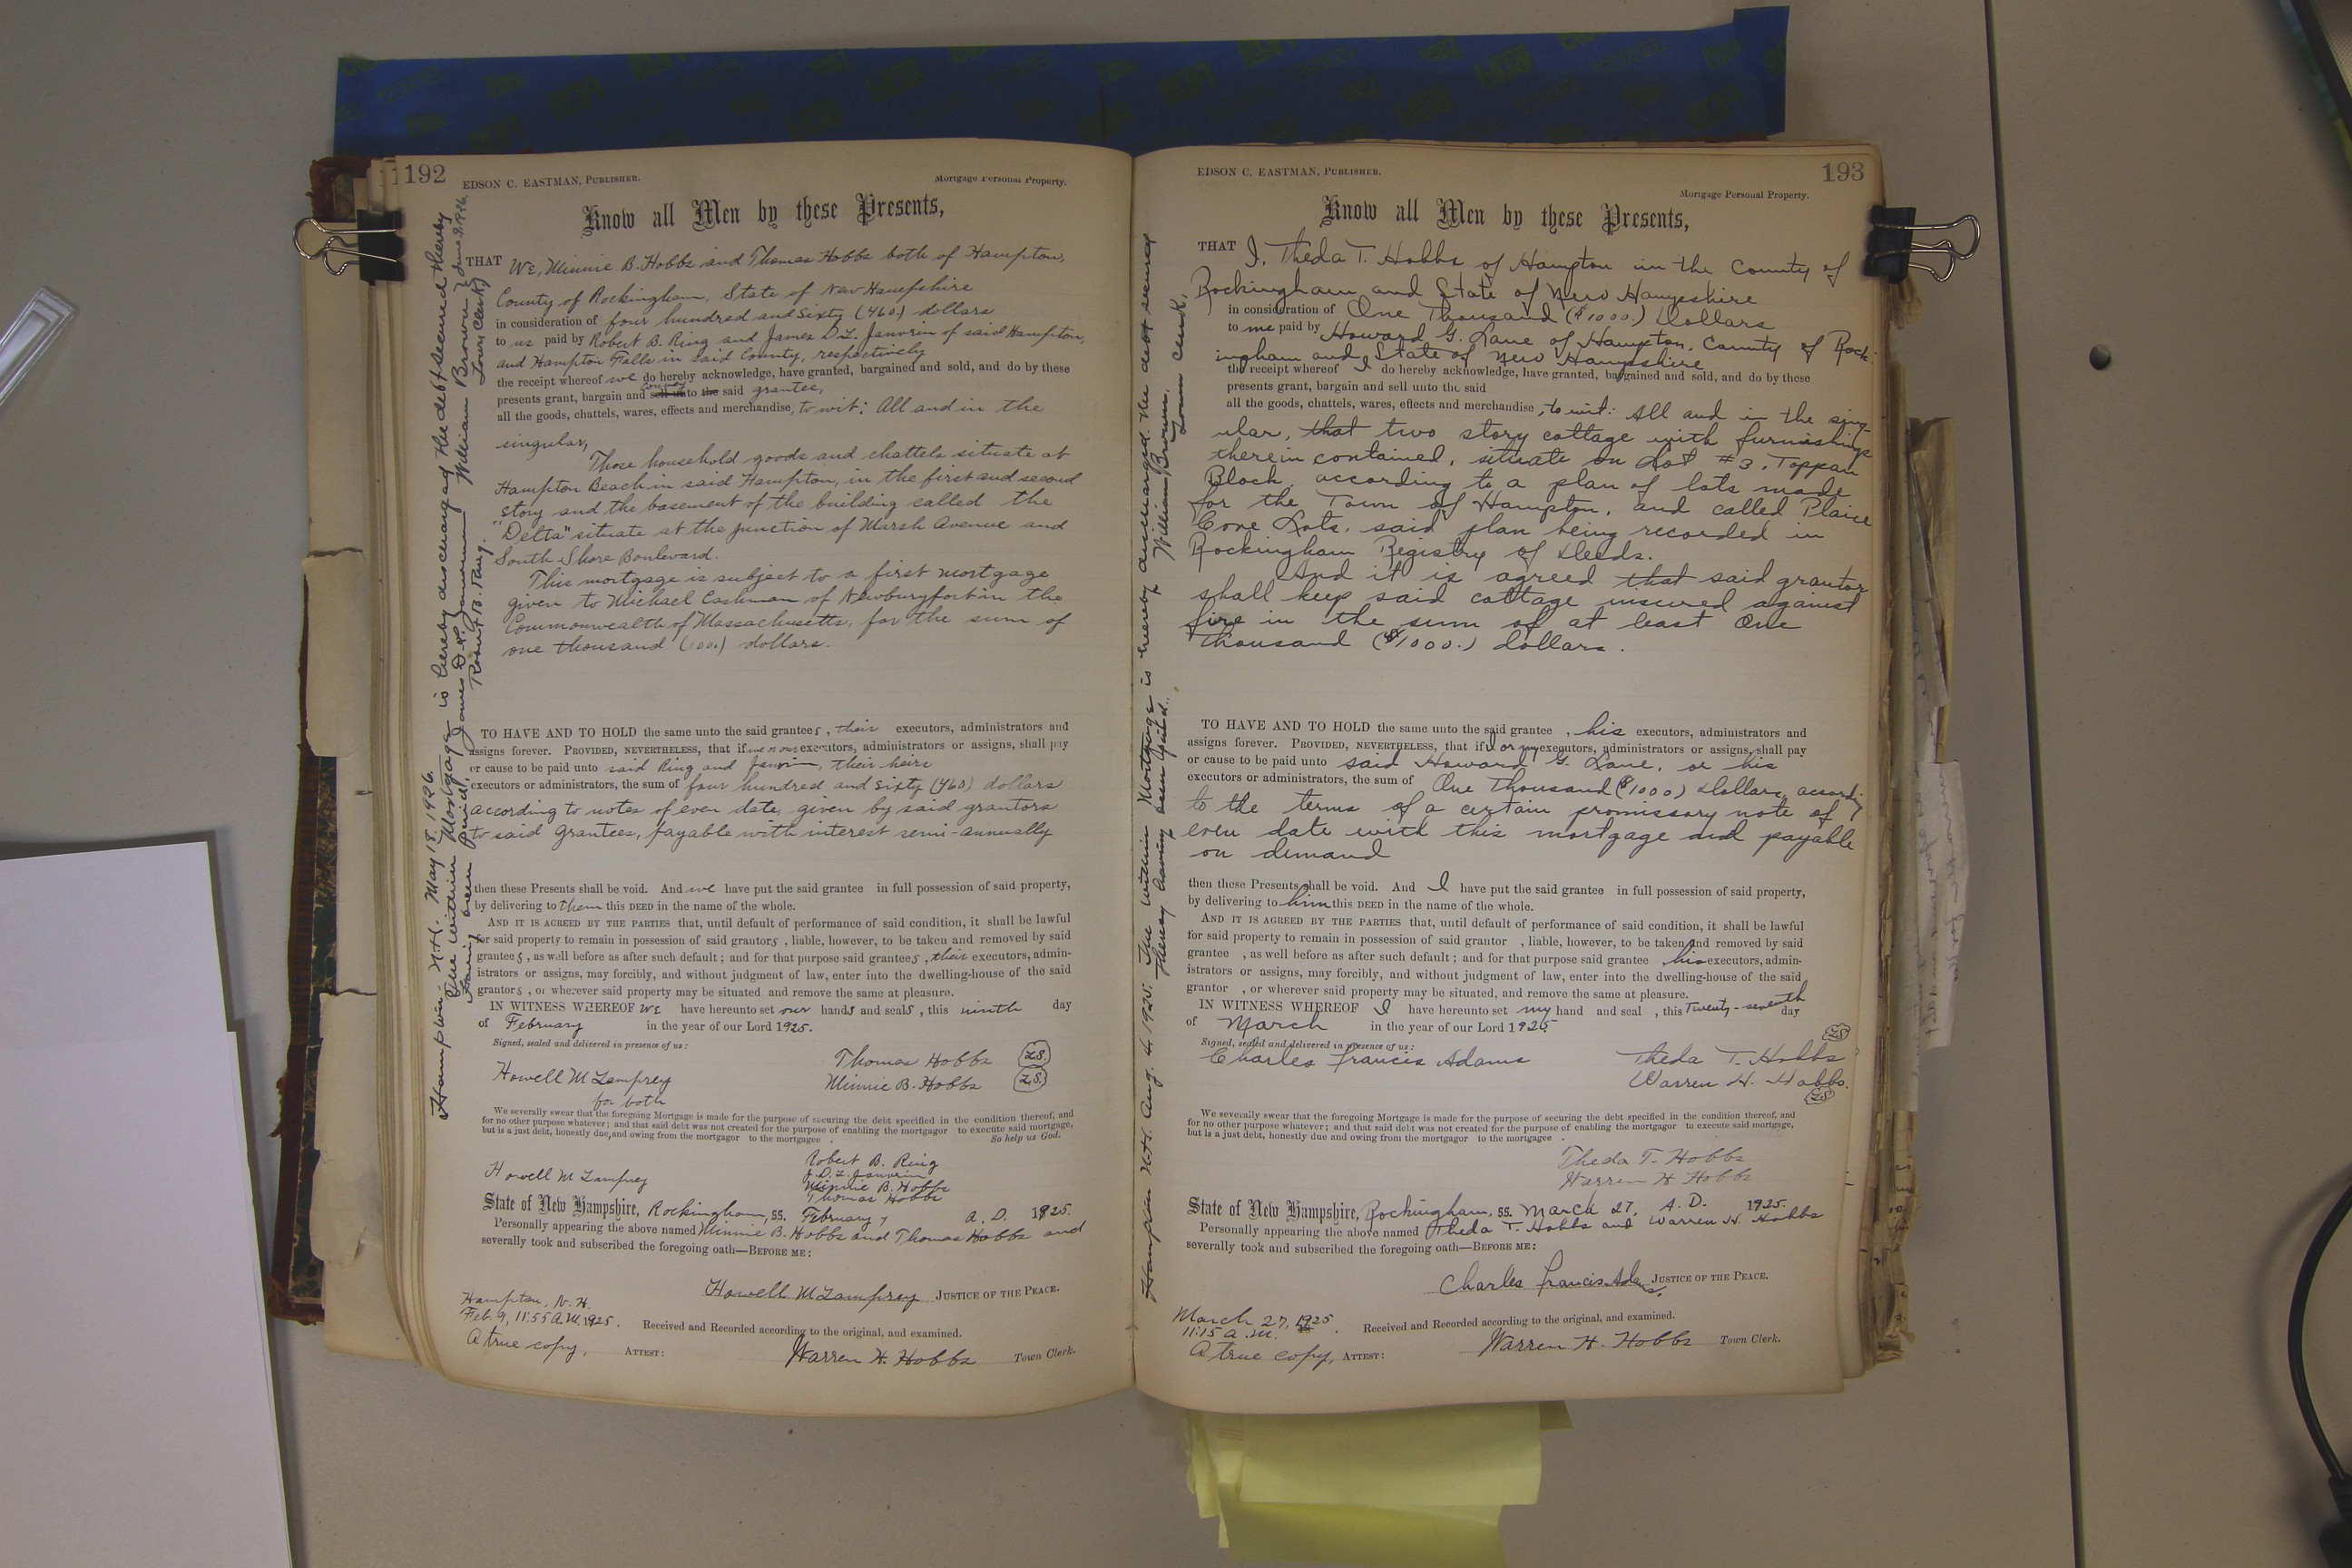 192
EDSON C. EASTMAN, PUBLISHER.
Mortgage Personal Property.
Know all Men by these Presents,
THAT We, Minnie B. Hobbs and Thomas Hobbs both of Hampton,
County of Rockingham, State of New Hampshire
in consideration of four hundred and sixty (460.) dollars
to us paid by Robert B. Ring and James D. L. Janvrin of said Hampton,
and Hampton Falls in said County, respectively
the receipt whereof we do hereby acknowledge, have granted, bargained and sold, and do by these
presents grant, bargain and sell unto the said grantee,
convey
all the goods, chattels, wares, effects and merchandise, to wit: All and in the
singular,
Those household goods and chattels situate at
Hampton Beach in said Hampton, in the first and second
story and the basement of the building called the
"Delta" situate at the junction of Marsh Avenue and
South Shore Boulevard.
This mortgage is subject to a first mortgage
given to Michael Cashman of Newburyport in the
Commonwealth of Massachusetts, for the sum of
one thousand (100.) dollars.
TO HAVE AND TO HOLD the same unto the said grantees, their executors, administrators and
assigns forever. PROVIDED, NEVERTHELESS, that if we or our executors, administrators or assigns, shall pay
or cause to be paid unto said Ring and Janvrin, their heirs
executors or administrators, the sum of four hundred and sixty (460) dollars
according to notes of even date, given by said grantors
to said Grantees, payable with interest semi-annually
then these Presents shall be void. And we have put the said grantee in full possession of said property,
by delivering to them this DEED in the name of the whole.
AND IT IS AGREED BY THE PARTIES that, until default of performance of said condition, it shall be lawful
for said property to remain in possession of said grantors, liable, however, to be taken and removed by said
grantees, as well before as after such default; and for that purpose said grantees, their executors, admin-
istrators or assigns, may forcibly, and without judgment of law, enter into the dwelling-house of the said
grantors, or wherever said property may be situated and remove the same at pleasure.
IN WITNESS WHEREOF We have hereunto set our hands and seals, this ninth day
of February in the year of our Lord 1925.
Signed, sealed and delivered in presence of us:
Thomas Hobbs L.S.
Howell M Lamprey Minnie B. Hobbs L.S.
for both
We severally swear that the foregoing Mortgage is made for the purpose of securing the debt specified in the condition thereof, and
for no other purpose whatever; and that said debt was not created for the purpose of enabling the mortgagor to execute said mortgage,
but is a just debt, honestly due, and owing from the mortgagor to the mortgagee. So help us God.
Robert B. Ring
Howell M Lamprey J. D. L. Janvrin
Minnie B. Hobbs
Thomas Hobbs
State of New Hampshire, Rockingham, SS. February, A. D. 1925.
Personally appearing the above named Minnie B. Hobbs and Thomas Hobbs and
severally took and subscribed the foregoing oath—BEFORE ME:
Howell M Lamprey JUSTICE OF THE PEACE.
Hampton, N. H.
Feb. 9, 11:55 A.M. 1925. Received and Recorded according to the original, and examined.
A true copy, ATTEST: Warren H. Hobbs Town Clerk.
Hampton, N.H. May 18, 1926.
The within Mortgage is hereby discharged the debt secured thereby
having been paid. James D. L. Janvrin William Brown June 9, 1926.
Robert B. Ring. Town Clerk
193
EDSON C. EASTMAN, PUBLISHER.
Mortgage Personal Property.
Know all Men by these Presents,
THAT I, Theda T. Hobbs of Hampton in the County of
Rockingham and State of New Hampshire
in consideration of One Thousand ($1000.) Dollars
to me paid by Howard G. Lane of Hampton, County of Rock-
ingham and State of New Hampshire
the receipt whereof I do hereby acknowledge, have granted, bargained and sold, and do by these
presents grant, bargain and sell unto the said
all the goods, chattels, wares, effects and merchandise, to wit: All and in the sing-
ular, that two story cottage with furnishings
therein contained, situate on Lot #3, Toppan
Block, according to a plan of lots made
for the Town of Hampton, and called Plaice
Cove Lots, said plan being recorded in
Rockingham Registry of Deeds.
And it is agreed that said grantor
shall keep said cottage insured against
fire in the sum of at least One
thousand ($1000.) dollars.
TO HAVE AND TO HOLD the same unto the said grantee, his executors, administrators and
assigns forever. PROVIDED, NEVERTHELESS, that if I or my executors, administrators or assigns, shall pay
or cause to be paid unto said Howard G. Lane, or his
executors or administrators, the sum of One Thousand ($1000) Dollars, according
to the terms of a certain promissory note of
even date with this mortgage and payable
on demand
then these Presents shall be void. And I have put the said grantee in full possession of said property,
by delivering to him this DEED in the name of the whole.
AND IT IS AGREED BY THE PARTIES that, until default of performance of said condition, it shall be lawful
for said property to remain in possession of said grantor, liable, however, to be taken and removed by said
grantee, as well before as after such default; and for that purpose said grantee his executors, admin-
istrators or assigns, may forcibly, and without judgment of law, enter into the dwelling-house of the said
grantor, or wherever said property may be situated, and remove the same at pleasure.
IN WITNESS WHEREOF I have hereunto set my hand and seal, this Twenty-seventh day
of March in the year of our Lord 1925
Signed, sealed and delivered in presence of us: L.S.
Charles Francis Adams Theda T. Hobbs
Warren H. Hobbs.
L.S.
We severally swear that the foregoing Mortgage is made for the purpose of securing the debt specified in the condition thereof, and
for no other purpose whatever; and that said debt was not created for the purpose of enabling the mortgagor to execute said mortgage,
but is a just debt, honestly due and owing from the mortgagor to the mortgagee.
Theda T. Hobbs
Warren H Hobbs
State of New Hampshire, Rockingham, SS. March 27, A. D. 1925.
Personally appearing the above named Theda T. Hobbs and Warren H. Hobbs
severally took and subscribed the foregoing oath—BEFORE ME:
Charles Francis Adams, JUSTICE OF THE PEACE.
March 27, 1925
11:15 a.m. Received and Recorded according to the original, and examined.
A true copy, ATTEST: Warren H. Hobbs Town Clerk.
Hampton N.H. Aug. 4, 1925. The within Mortgage is hereby discharged. the debt secured
thereby having been paid. William Brown,
Town Clerk.